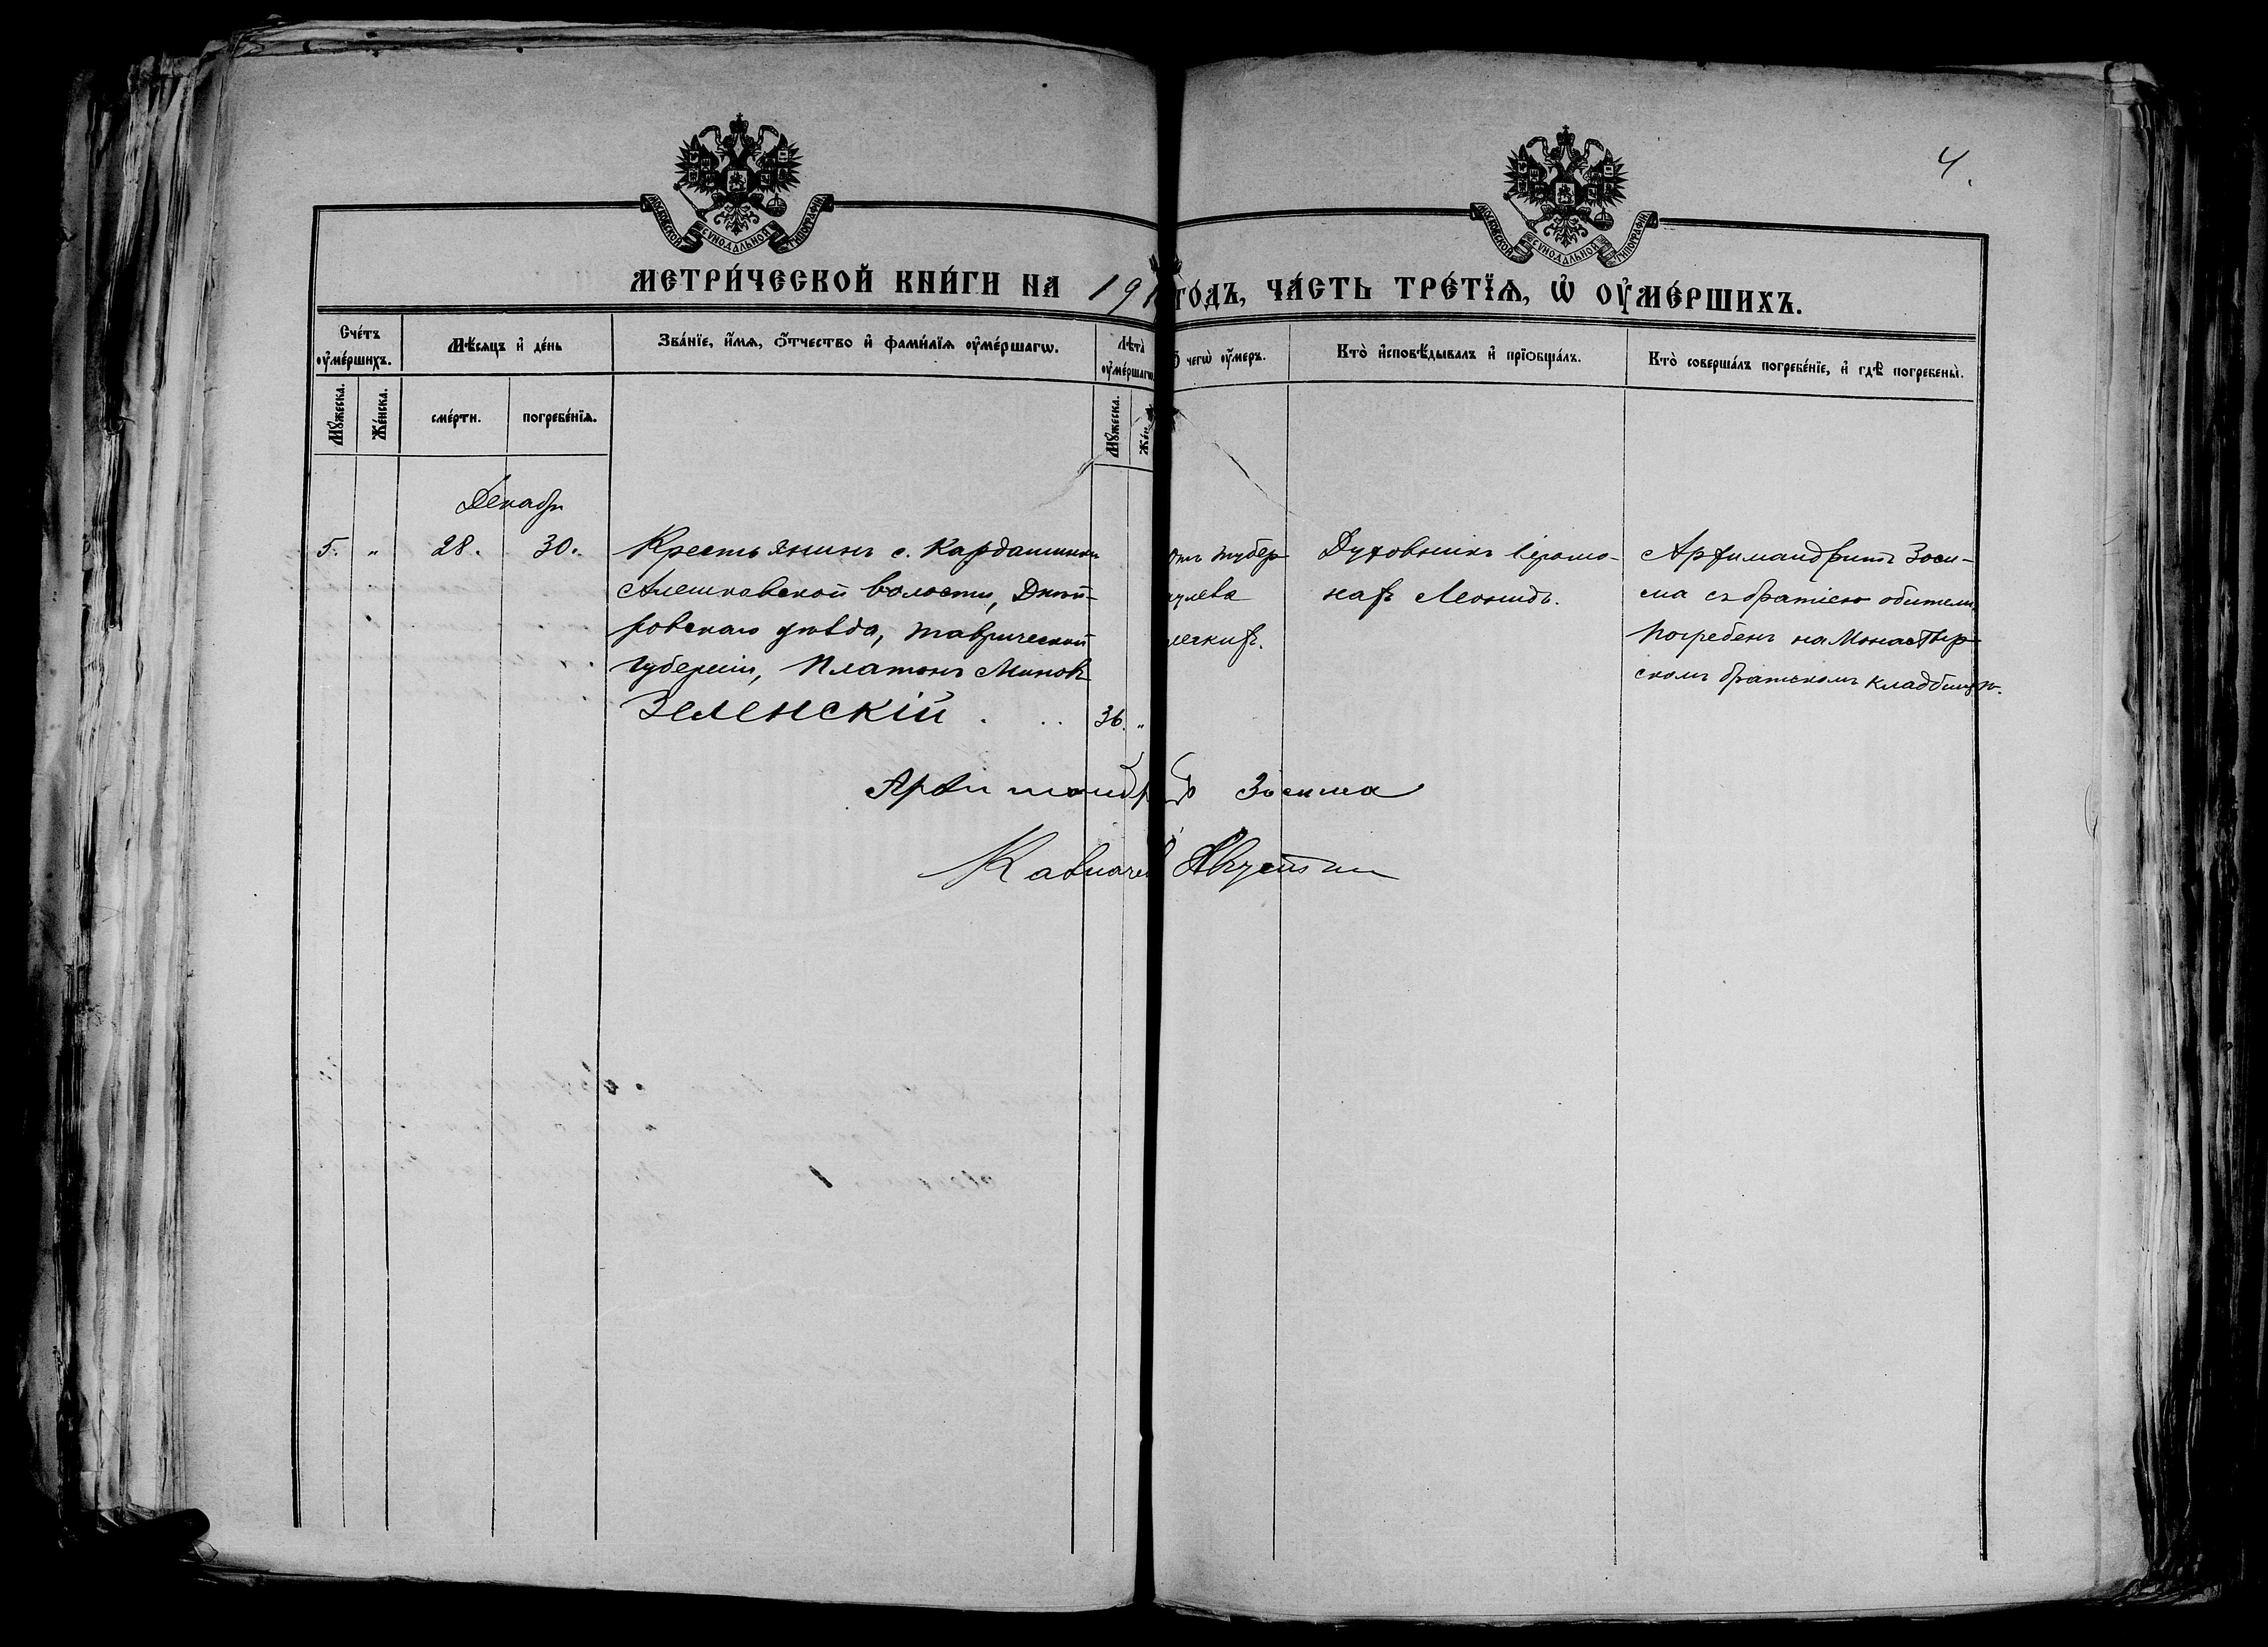 4.
МОСКОВСКОЙ СѴНОДАЛЬНОЙ ТИПОГРАФІИ
МОСКОВСКОЙ СѴНОДАЛЬНОЙ ТИПОГРАФІИ
МЕТРИ́ЧЕСКОЙ КНИ́ГИ НА 191 ГО́ДЪ, ЧА́СТЬ ТРЕ́ТЇѦ, Ѡ҆ ОУ҆МЕ́РШИХЪ.
Сче́тъ оу҆ме́ршихъ.
Мѣ́сяцъ и҆ де́нь
Зва́нїе, и҆́мѧ, ѻ҆́тчество и҆ фами́лїѧ оу҆ме́ршагѡ.
Лѣта̀ оу҆ме́ршагѡ
Ѿ чегѡ̀ оу҆́меръ.
Кто̀ и҆сповѣ́дывалъ и҆ прїѡбща́лъ.
Кто̀ соверша́лъ погребе́нїе, и҆ гдѣ̀ погребены̀.
Мꙋ́жеска.
Же́нска.
сме́рти.
погребе́нїѧ.
Мꙋ́жеска.
Же́н
Декабр
5. " 28. 30. Крестьянинъ с. Кардашинки
Алешковской волости, Днѣп-
ровскаго уѣзда, Таврической
губерніи, Платонъ Миновъ
Зеленскій . . . 36. "
отъ тубер
кулеза
легкихъ.
Духовникъ Іеромо-
нахъ Леонидъ.
Архимандритъ Зоси-
ма съ братіею обители.
Погребенъ на Монастыр-
скомъ братскомъ кладбищѣ.
Архимандритъ Зосима
Казначей Августин